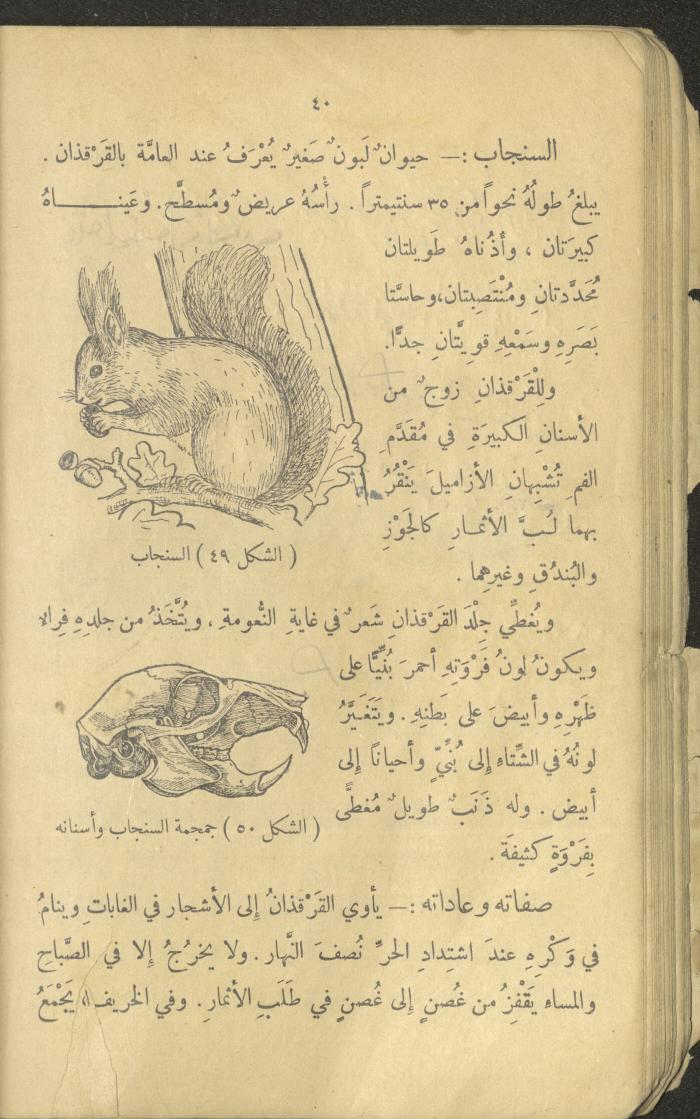 ٤٠
السنجاب :— حيوانٌ لَبونٌ صَغيرٌ يُعْرَفُ عند العامَّة بالقَرْقذان .
يبلغُ طولُهُ نحواً من ٣٥ سنتيمتراً . رأْسُهُ عريضٌ ومُسطَّح . وعَينـــاهُ
كبيرَتان ، وأُذُناهُ طَويلتان
مُحَدَّدتانِ ومُنْتَصِبتان،وحاسَّتا
بَصَرِهِ وسَمْعِهِ قويَّتانِ جدًّا.
وللْقَرْقذانِ زوجٌ من
الأسنانِ الكبيرَةِ في مُقَدَّمِ
الفمِ تُشْبِهانِ الأزاميلَ يَنْقُرُ
بهما لُبَّ الأثمارِ كالجَوْزِ
والبُندُقِ وغيرِهما .
( الشكل ٤٩ ) السنجاب
ويُغطِّي جِلْدَ القَرْقذانِ شَعرٌ في غايةِ النُّعومةِ ، ويُتَّخَذُ من جلدِهِ فِراء
ويكونُ لونُ فَرْوَتِهِ أحمرَ بُنِّيًّا على
ظَهْرِهِ وأبيضَ على بَطنِهِ . ويَتَغَيَّرُ
لونُهُ في الشِّتاءِ إلى بُنِّيٍّ وأحياناً إلى
أبيض . وله ذَنَبٌ طويلٌ مُغطًّى
بِفَرْوَةٍ كثيفَة .
( الشكل ٥٠ ) جمجمة السنجاب وأسنانه
صفاته وعاداته :— يأوي القَرْقذانُ إلى الأشجار في الغاباتِ وينامُ
في وَكْرِهِ عندَ اشتِدادِ الحرِّ نُصفَ النَّهار . ولا يخرُجُ إلا في الصَّباحِ
والمساءِ يَقْفِزُ من غُصنٍ إلى غُصنٍ في طَلَبِ الأثمارِ . وفي الخريف يَجْمَعُ